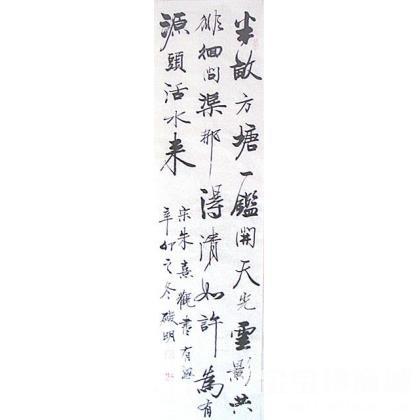 半畝方塘一鑑開天光雲影共
徘徊問渠那得清如許為有
源頭活水来
宋朱熹觀書有感
辛卯之冬破明